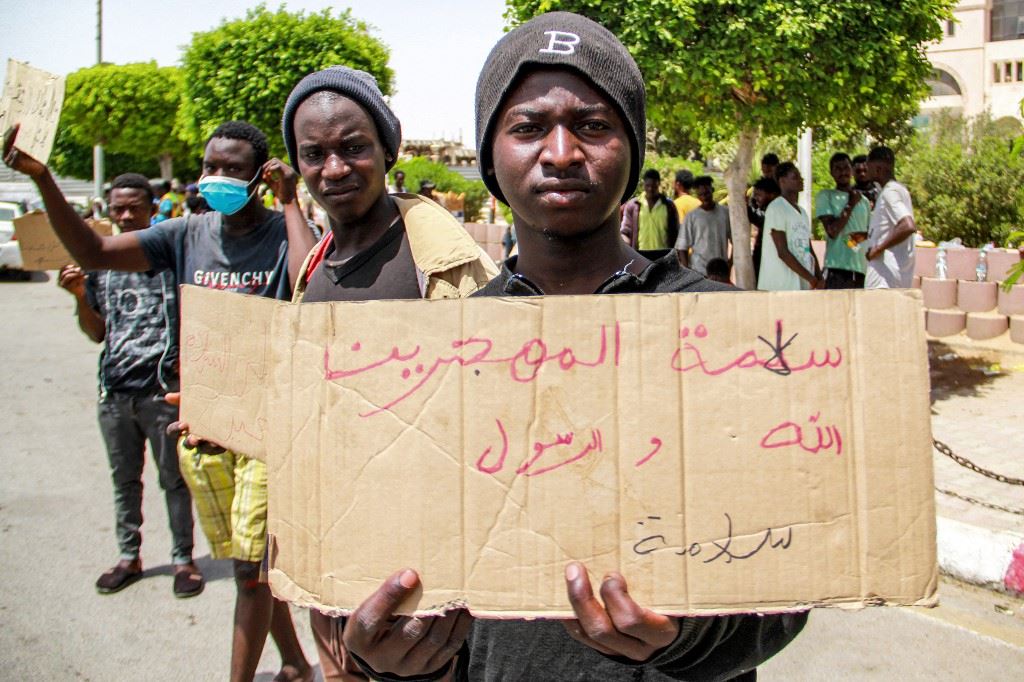 B
GIVENCHY
سلامة المهجترين
الله و الرسول
سلامة